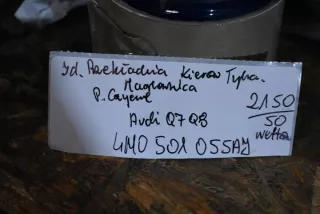 Jd. Przekładnia Kierow Tylna.
Maglownica
P. Cayene
2150
Audi Q7 Q8
50
wetter
4M0 501 055AJ